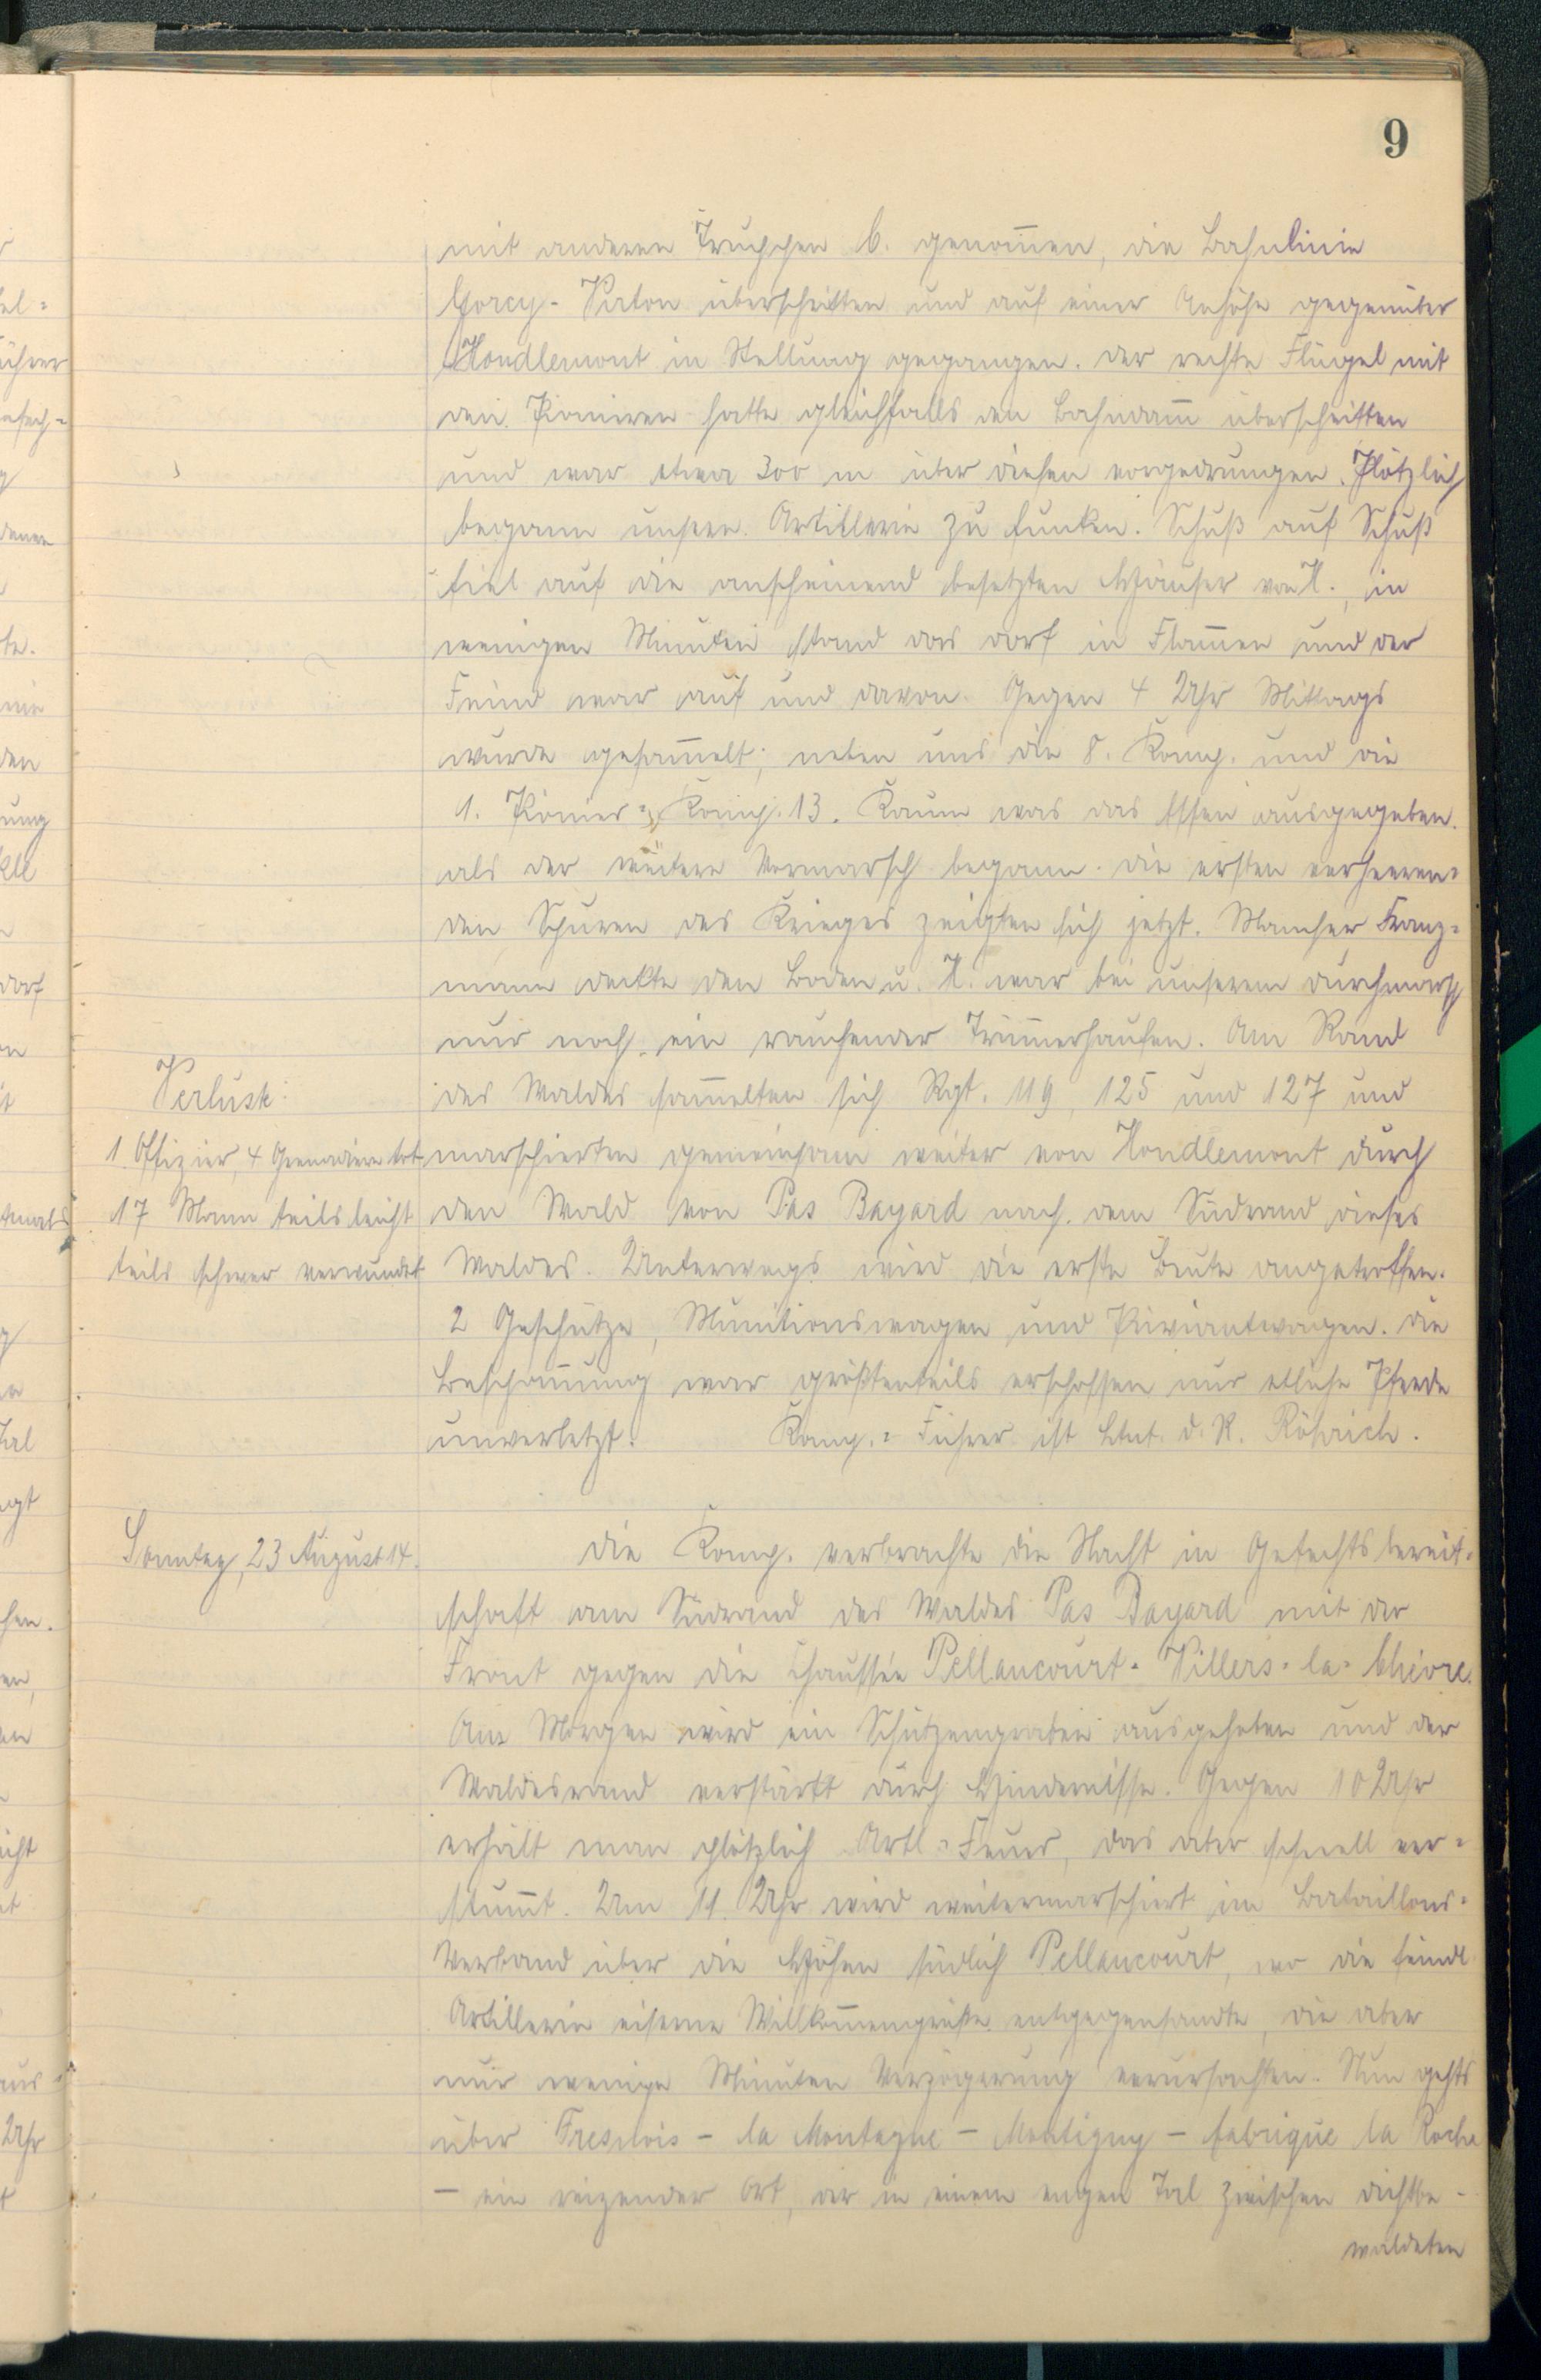 9
mit anderen Truppen b. genom̅en, die Bahnlinie
Gorcy - Virton überschritten und auf einer Anhöhe gegenüber
Houdlemont in Stellung gegangen. Der rechte Flügel mit
den Pionieren hatte gleichfalls den Bahndam̅ überschritten
und war etwa 300 m über diesen vorgedrungen. Plötzlich
begann unsere Artillerie zu funken. Schuß auf Schuß
fiel auf die anscheinend besetzten Häuser von H., in
wenigen Minuten stand das Dorf in Flam̅en und der
Feind war auf und davon. Gegen 4 Uhr Mittags
wurde gesam̅elt; neben uns die 8. Komp. und die
1. Pionier=Komp. 13. Kaum war das Essen ausgegeben
als der weitere Vormarsch begann. Die ersten verheeren=
den Spuren des Krieges zeigten sich jetzt. Mancher Franz=
mann deckte den Boden u. H. war bei unserem Durchmarsch
nur noch ein rauchender Trüm̅erhaufen. Am Rand
des Waldes sam̅elten sich Rgt. 119, 125 und 127 und
marschierten gemeinsam weiter von Houdlemont durch
den Wald von Pas Bayard nach dem Südrand dieses
Waldes. Unterwegs wird die erste Beute angetroffen.
2 Geschütze, Munitionswagen und Proviantwagen. Die
Bespan̅ung war größtenteils erschossen nur etliche Pferde
unverletzt. Komp.=Führer ist Ltnt. d. R. Röhrich.
Verluste:
1 Offizier, 4 Grenadiere tot
17 Mann teils leicht
teils schwer verwundet
Sonntag, 23 August 14.
Die Komp. verbrachte die Nacht in Gefechtsbereit=
schaft am Südrand des Waldes Pas Bayard mit der
Front gegen die Chaussée Pellancourt - Villers=la=Chèvre.
Am Morgen wird ein Schützengraben ausgehoben und der
Waldesrand verstärkt durch Hindernisse. Gegen 10 Uhr
erhält man plötzlich Artl=Feuer, das aber schnell ver=
stum̅t. Um 11 Uhr wird weitermarschiert im Bataillons=
Verband über die Höhen südlich Pellancourt, wo die feindl
Artillerie eiserne Willkom̅engrüße entgegensandte, die aber
nur wenige Minuten Verzögerung verursachten. Nun gehts
über Fresnois - la Montagne - Montigny - fabrique la Roche
- ein reizender Ort, der in einem engen Tal zwischen dichtbe-
waldeten